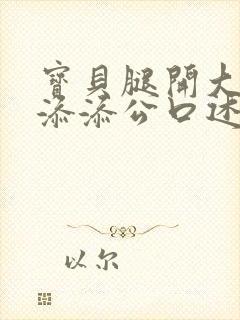 寶貝腿開大
添添公口述
以尔